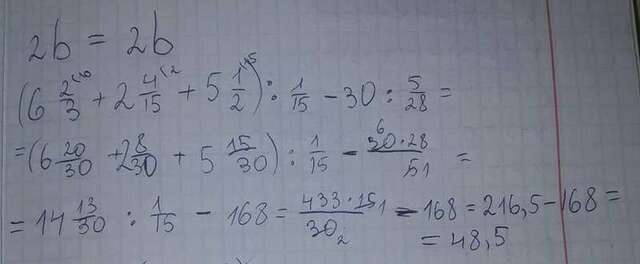 2b = 2b
(6 2/3 (10 + 2 4/15 (2 + 5 1/2 (15) : 1/15 - 30 : 5/28 =
= (6 20/30 + 2 8/30 + 5 15/30) : 1/15 - 30 6 · 28 / 5 1 =
= 14 13/30 : 1/15 - 168 = 433 · 15 1 / 30 2 - 168 = 216,5 - 168 =
= 48,5